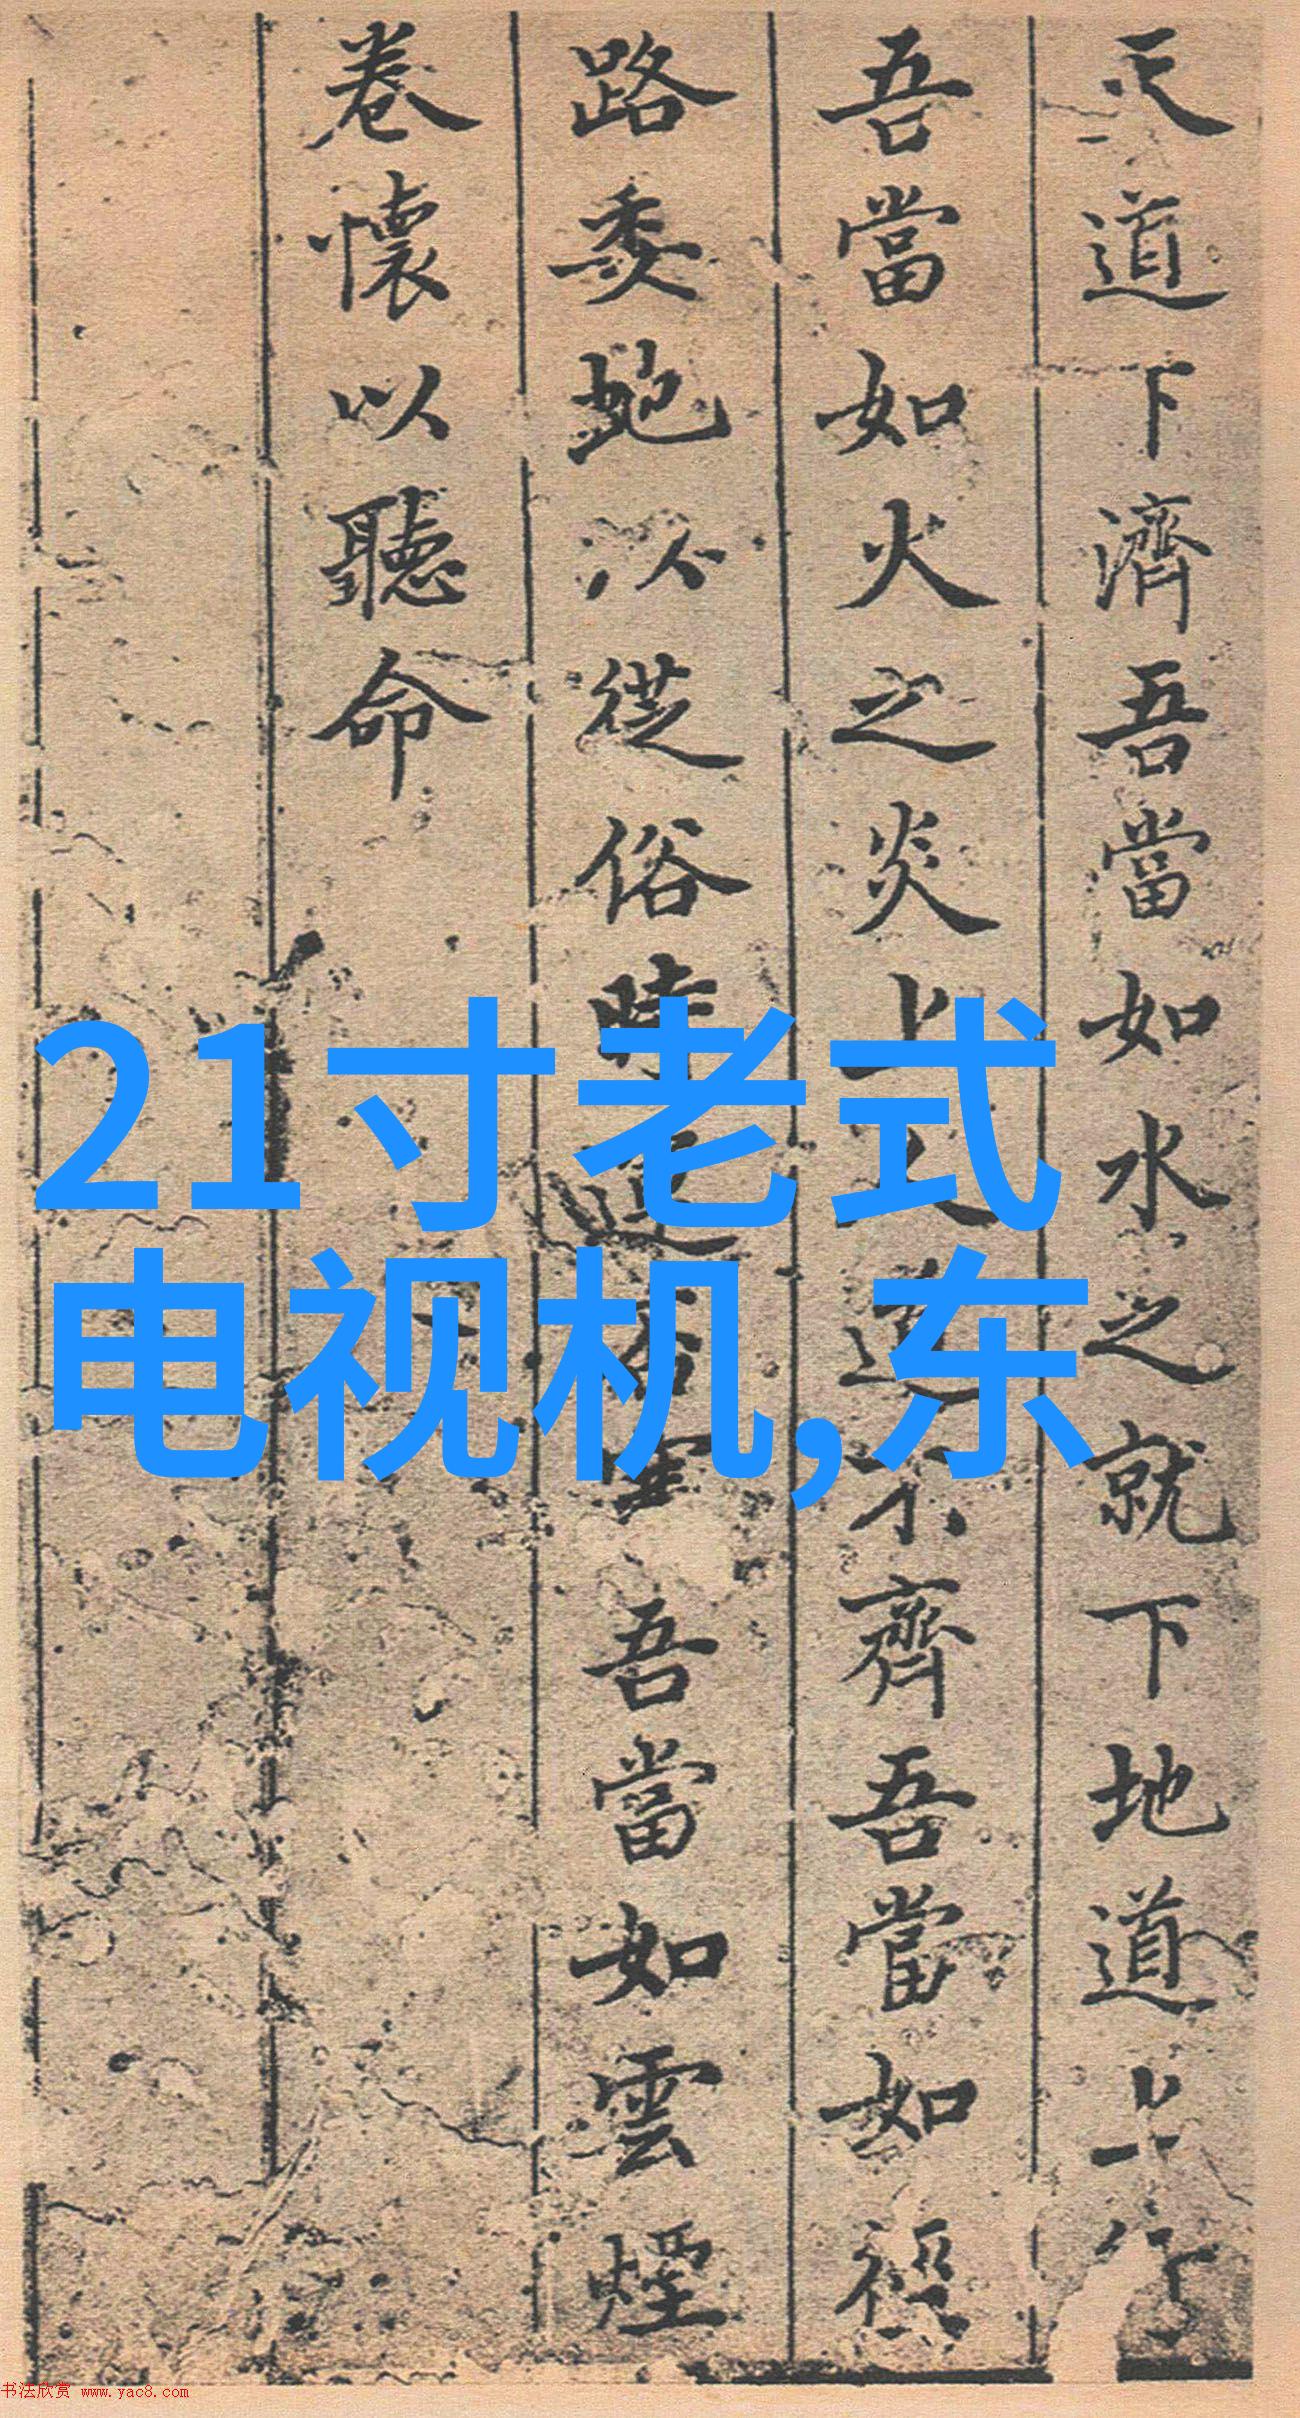 天道下濟吾當如水之就下地道上行
吾當如火之炎上人道不齊吾當如逕
路委蛇以從俗時運否塞吾當如雲煙
卷懷以聽命
21寸老式
电视机,东
书法欣赏 www.yac8.com